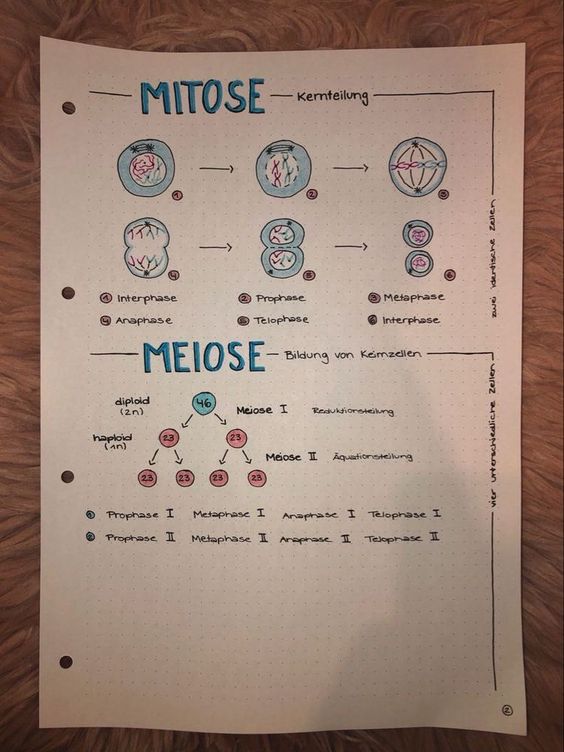 MITOSE – Kernteilung
1 2 3
4 5 6
1 Interphase 2 Prophase 3 Metaphase
4 Anaphase 5 Telophase 6 Interphase
zwei identische Zellen
MEIOSE – Bildung von Keimzellen
diploid (2n) 46 Meiose I Reduktionsteilung
haploid (1n) 23 23
Meiose II Äquationsteilung
23 23 23 23
1 Prophase I Metaphase I Anaphase I Telophase I
2 Prophase II Metaphase II Anaphase II Telophase II
vier unterschiedliche Zellen
2